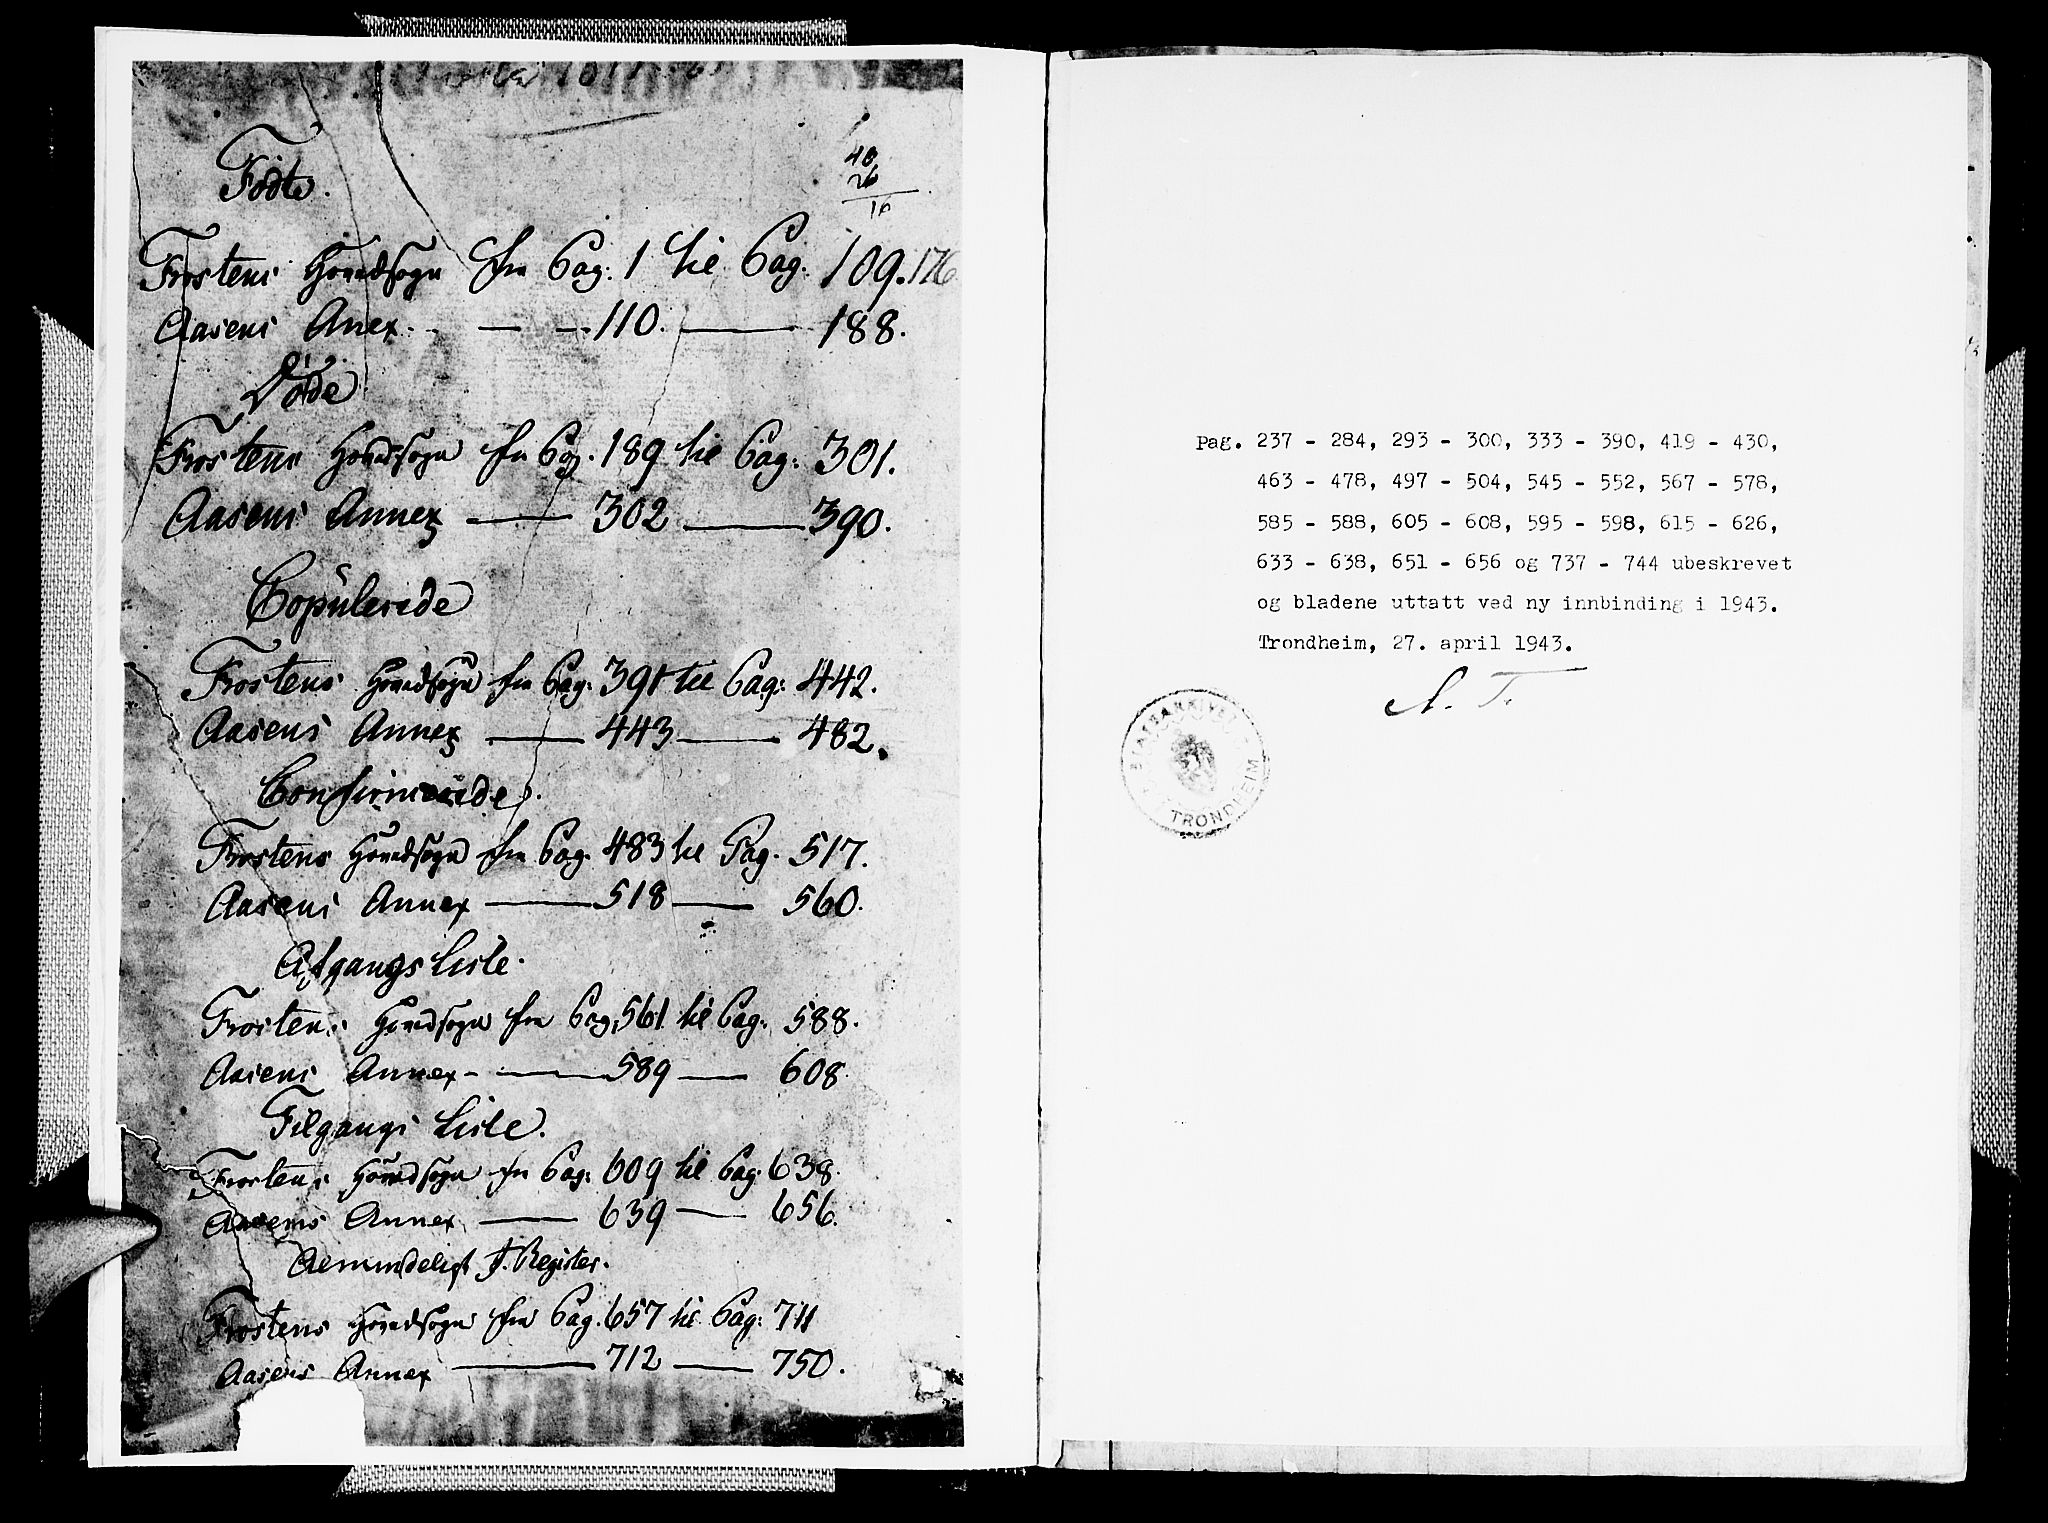 Födte.
40
26
16
Frostens Hovedsogn fra Pag: 1 til Pag: 109. 176
Aasens Anex - — — 110. — 188.
Döde
Frostens Hovedsogn fra Pag. 189 til Pag: 301.
Aasens Annex — 302 — 390.
Copülerede
Frostens Hovedsogn fra Pag: 391 til Pag: 442.
Aasens Annex — 443 — 482.
Confirmerede.
Frostens Hovedsogn fra Pag. 483 til Pag. 517.
Aasens Annex — 518 — 560.
Afgangs Liste.
Frostens Hovedsogn fra Pag. 561 til Pag: 588.
Aasens Annex - — 589 — 608.
Tilgangs Liste.
Frostens Hovedsogn fra Pag: 609 til Pag: 638.
Aasens Annex — 639 — 656.
Almindeligt J. Register.
Frostens Hovedsogn fra Pag. 657 til Pag: 711
Aasens Annex — 712 — 750.
Pag. 237 - 284, 293 - 300, 333 - 390, 419 - 430,
463 - 478, 497 - 504, 545 - 552, 567 - 578,
585 - 588, 605 - 608, 595 - 598, 615 - 626,
633 - 638, 651 - 656 og 737 - 744 ubeskrevet
og bladene uttatt ved ny innbinding i 1943.
Trondheim, 27. april 1943.
A. T.
STATSARKIVET I TRONDHEIM